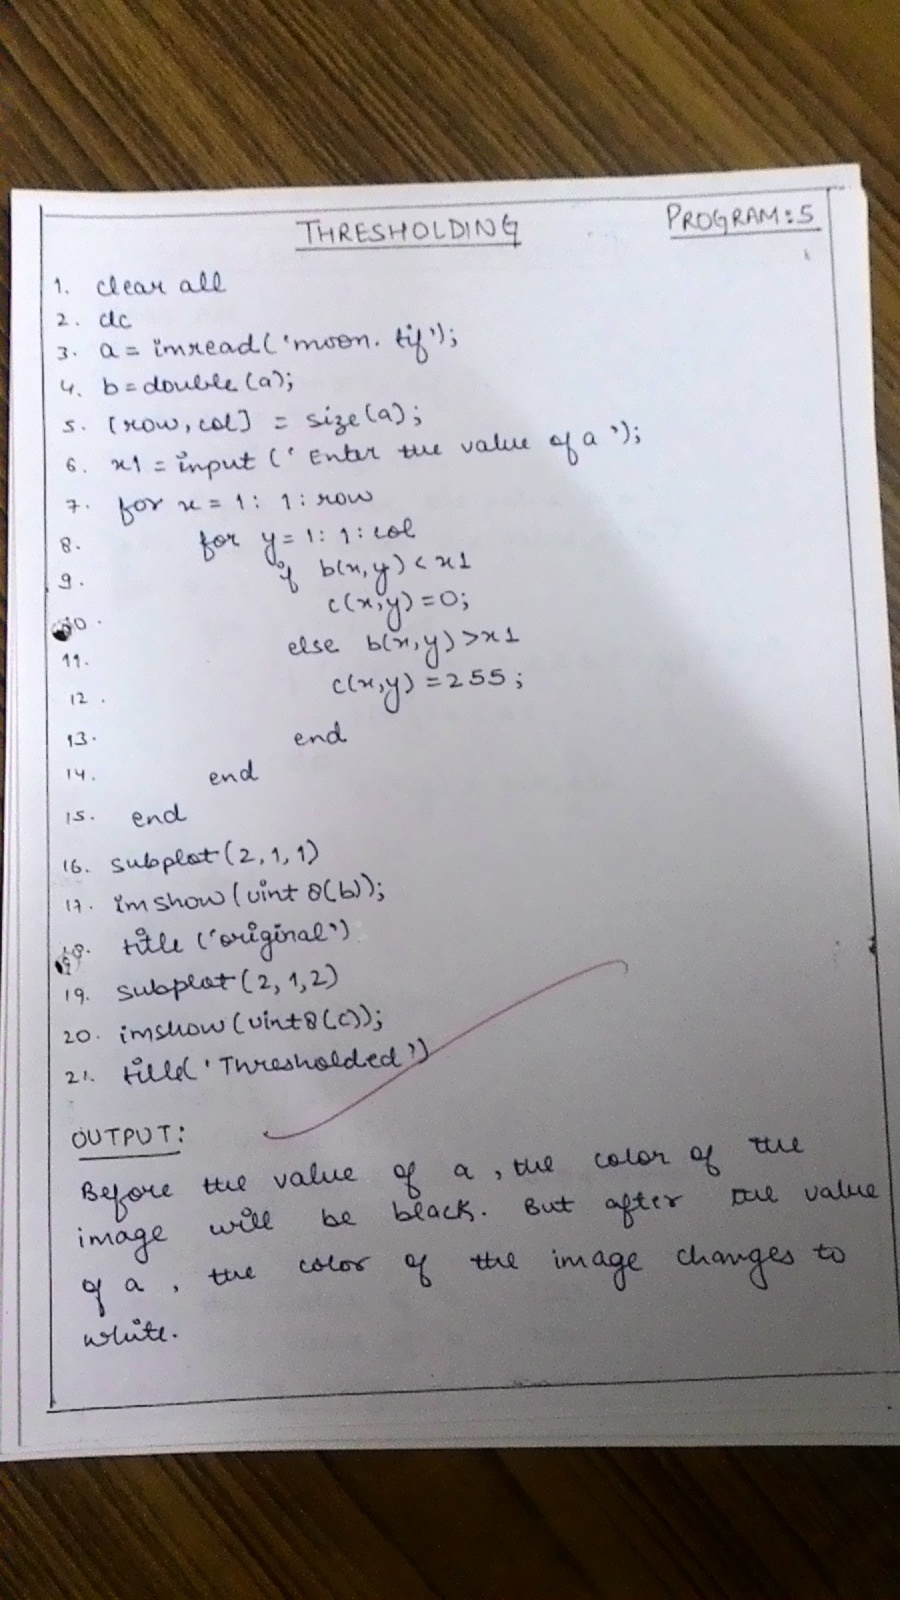 THRESHOLDING PROGRAM: 5
1. clear all
2. clc
3. a = imread('moon.tif');
4. b = double(a);
5. [row, col] = size(a);
6. x1 = input ('Enter the value of a');
7. for x = 1: 1: row
8. for y = 1: 1: col
9. if b(x,y) < x1
10. c(x,y) = 0;
11. else b(x,y) > x1
12. c(x,y) = 255;
13. end
14. end
15. end
16. subplot(2,1,1)
17. imshow(uint 8(b));
18. title ('original')
19. subplot(2,1,2)
20. imshow(uint8(c));
21. title('Thresholded')
OUTPUT:
Before the value of a, the color of the
image will be black. But after the value
of a, the color of the image changes to
white.